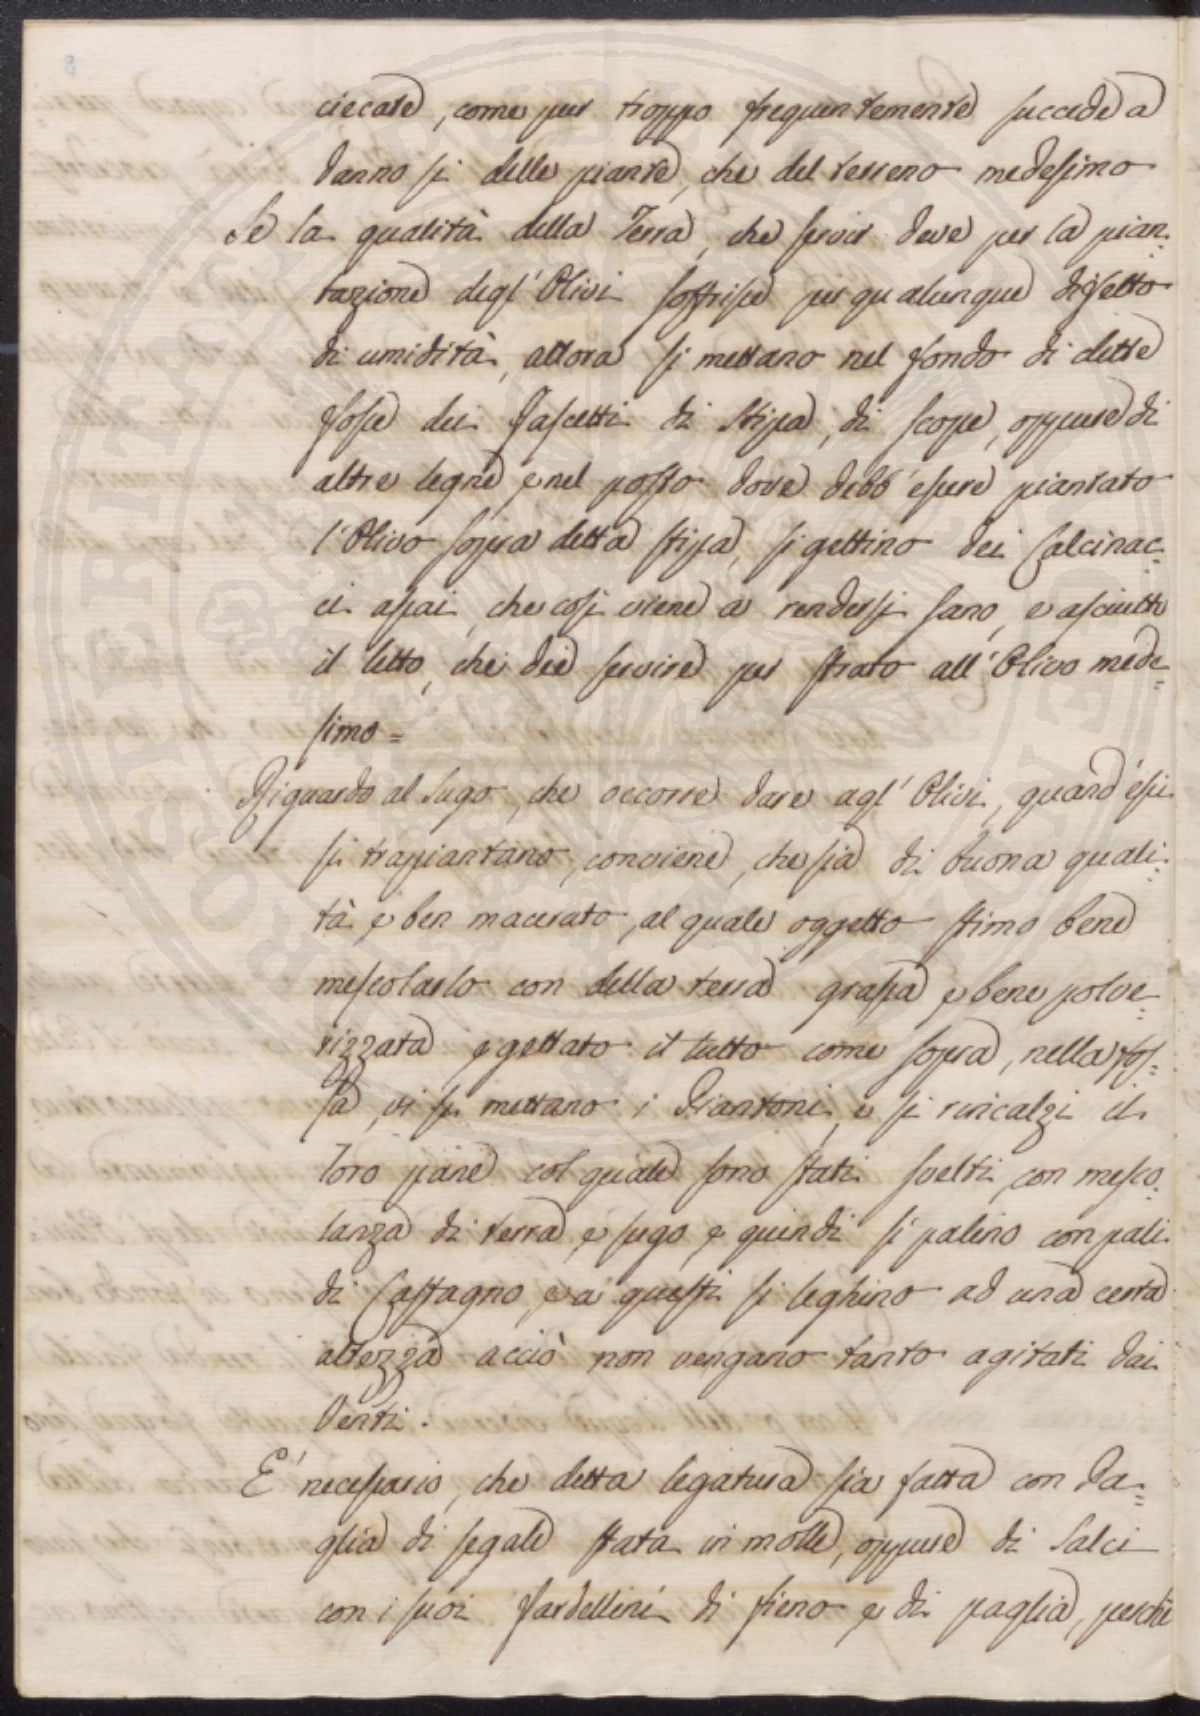 ciecare, come pur troppo frequentemente succede a
danno si delle piante, che del terreno medesimo
Se la qualità della Terra, che servir deve per la pian=
tazione degl' Olivi soffrisse per qualunque difetto
di umidità, allora si mettano nel fondo di dette
fosse dei Fascetti di Stipa, di scope, oppure di
altre legne, e nel posto dove debb' essere piantato
l' Olivo sopra detta stipa, si gettino dei Calcinac=
ci assai, che così viene a rendersi sano, e asciutto
il letto, che deè servire per strato all' Olivo mede=
simo =
Riguardo al Sugo, che occorre dare agl' Olivi, quand' essi
si trapiantano, conviene, che sia di buona quali=
tà, e ben macerato, al quale oggetto stimo bene
mescolarlo con della terra grassa, e bene polve=
rizzata, e gettato il tutto come sopra, nella fos=
sa, vi si mettano i Piantoni, e si rincalzi il
loro pane col quale sono stati svelti, con mesco=
lanza di terra, e sugo, e quindi si palino con pali
di Castagno, e a questi si leghino ad una certa
altezza acciò non vengano tanto agitati dai
Venti.
E' necessario, che detta legatura sia fatta con Pa=
glia di segale stata in molle, oppure di Salci
con i suoi fardellini di fieno, e di paglia, perchè